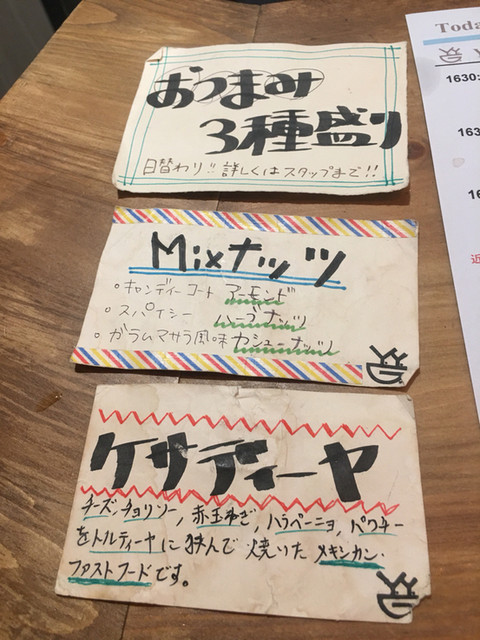 おつまみ
3種盛り
日替わり!! 詳しくはスタッフまで!!
Mixナッツ
。キャンディーコート アーモンド
。スパイシー ハーブナッツ
。ガラムマサラ風味 カシューナッツ
ケサディーヤ
チーズ、チョリソー、赤玉ねぎ、ハラペーニョ、パクチー
をトルティーヤに挟んで焼いたメキシカン・
ファストフードです。
Toda
1630:
163
16
返